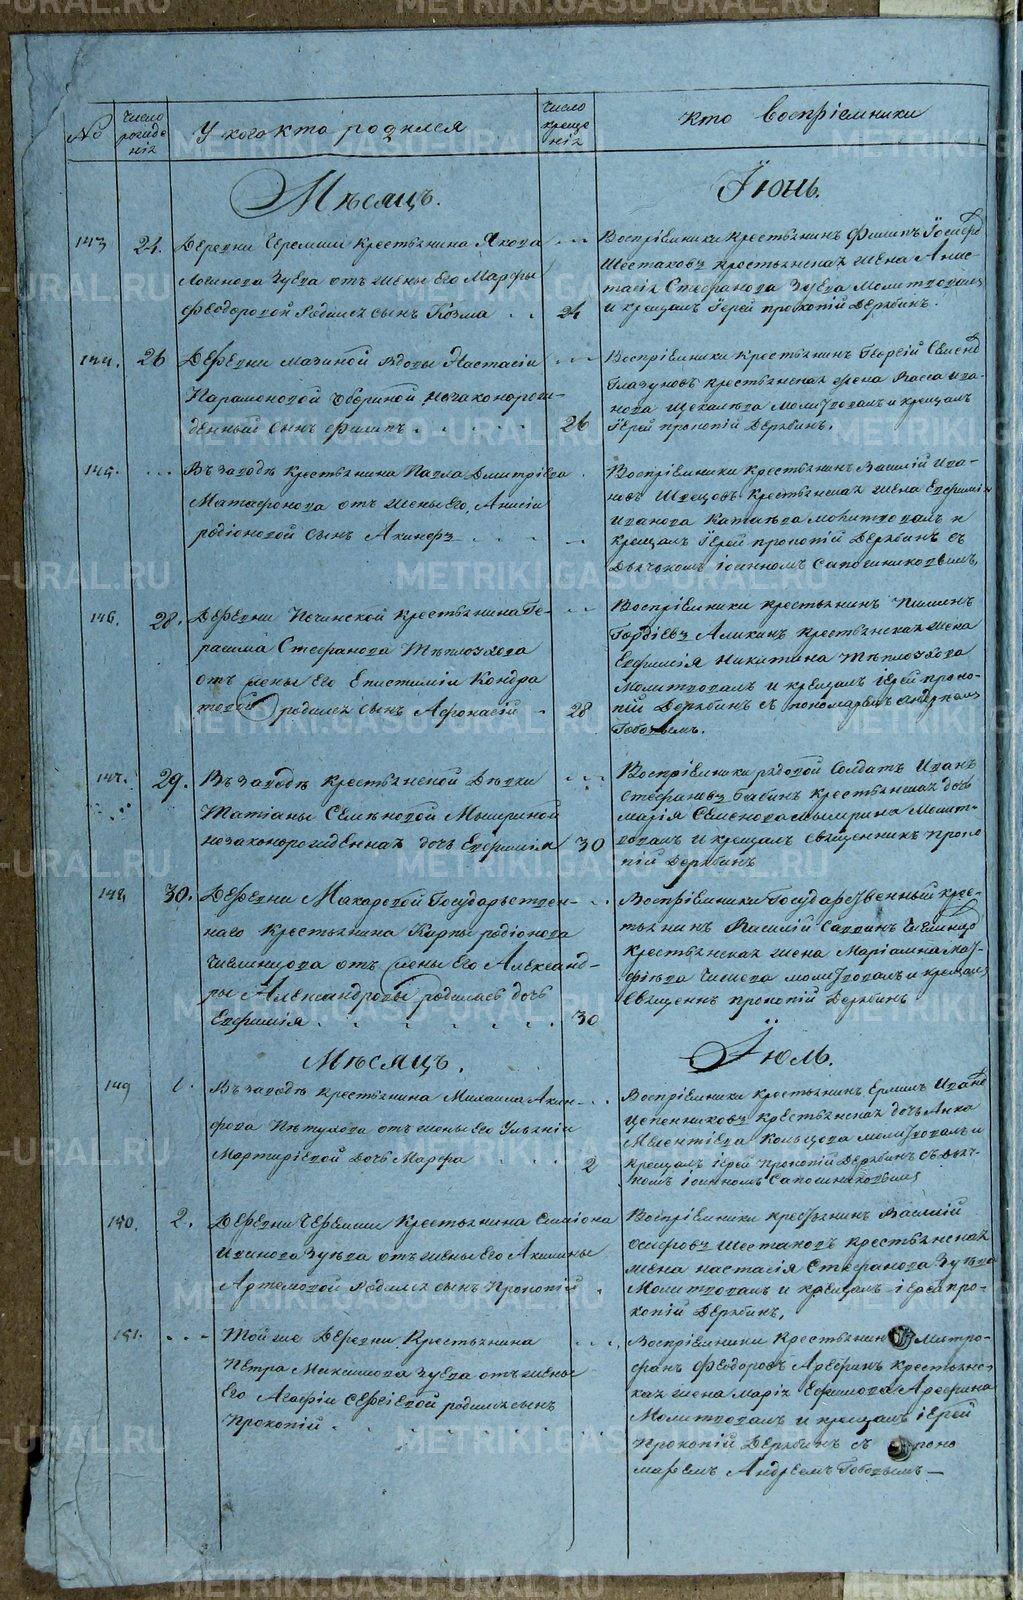 №
Число рождения
У кого кто родился
Число крещения
Кто воспріемники
Мѣсяцъ.
Їюнь.
143
24.
Деревни Черемши крестьянина Якова
Логинова Зуева отъ жены его Марфы
Феодоровой родился сынъ Козма . .
24
Воспріемники крестьянинъ Филипъ Їосифо
Шестаковъ крестьянская жена Анис-
тасія Стефанова Зуева Молитвовалъ
и крещалъ Їерей Прокопій Дерябинъ.
144.
26
Деревни Мазиной вдовы Настасіи
Парамоновой незаконорож-
денный сынъ Филипъ . . . . . .
26
Воспріемники крестьянинъ Георгій Семено
Глазуновъ крестьянская жена Васса Ива-
нова молитвовалъ и крещалъ
Їерей Прокопій Дерябинъ.
145.
. . .
Въ заводѣ крестьянина Павла Дмитріева
Матафонова отъ жены его Анисіи
родіоновой сынъ Акинфъ . . . .
Воспріемники крестьянинъ Василій Ива-
новъ Швецовъ крестьянская жена Евфимія
Иванова Катаева молитвовалъ и
крещалъ Їерей Прокопій Дерябинъ съ
Дьячкомъ Їоанномъ Сапожниковымъ,
146.
28.
Деревни крестьянина Ге-
расима Стефанова Тѣплоухова
отъ жены его Епистиміи Кондра
товой родился сынъ Афонасій -
28
Воспріемники крестьянинъ Пименъ
Гордѣевъ Аликинъ крестьянская жена
Евфимія Никитина Тѣплоухова
Молитвовалъ и крещалъ Їерей Проко-
пій Дерябинъ съ пономаремъ Андреемъ
147.
29.
Въ заводѣ крестьянской Дѣвки
Татіаны Семѣновой Мымриной
незаконорожденная дочь Евфимія
30
Воспріемники рядовой Солдатъ Иванъ
Стефановъ Бабинъ крестьянская дочь
Марія Семенова Мымрина Молит-
вовалъ и крещалъ священникъ Проко
пій Дерябинъ
148
30.
Деревни Макаровой Государствен-
наго крестьянина Карпа родіонова
отъ жены его Александ-
ры Александровы родилась дочь
Евфимія . . . . . . .
30
Воспріемники Государственный крес-
тьянинъ Василій Саввинъ
крестьянская жена Маріамна Мат-
фѣева молитвовалъ и крещалъ
священн Прокопій Дерябинъ
Мѣсяцъ.
Їюль.
149
1.
Въ заводѣ крестьянина Михаила Акин-
фова Пѣтухова отъ жены его Ульяніи
Мартиріевой дочь Марфа . . . .
2
Воспріемники крестьянинъ Ермилъ Ивано
крестьянская дочь Анна
молитвовалъ и
крещалъ Їерей Прокопій Дерябинъ съ дьяч-
комъ Їоанномъ Сапожниковымъ
150.
2.
Деревни Черемши крестьянина Симіона
Иванова Зуева отъ жены его Акилины
Артемовой родился сынъ Прокопій
Воспріемники крестьянинъ Василій
Осиповъ Шестаковъ крестьянская
жена Настасія Стефанова Зуева
Молитвовалъ и крещалъ Їерей Про-
копій Дерябинъ,
151.
. . -
Той же Деревни крестьянина
Петра Максимова Зуева отъ жены
его Агафіи Сергіевой родился сынъ
Прокопій . . . . . .
Воспріемники крестьянин Митро-
фанъ Федоровъ Арефинъ крестьянс-
кая жена Марія Ефимова Арефина
Молитвовалъ и крещалъ Їерей
Прокопій Дерябинъ съ поно
маремъ Андреемъ
METRIKI.GASO-URAL.RU